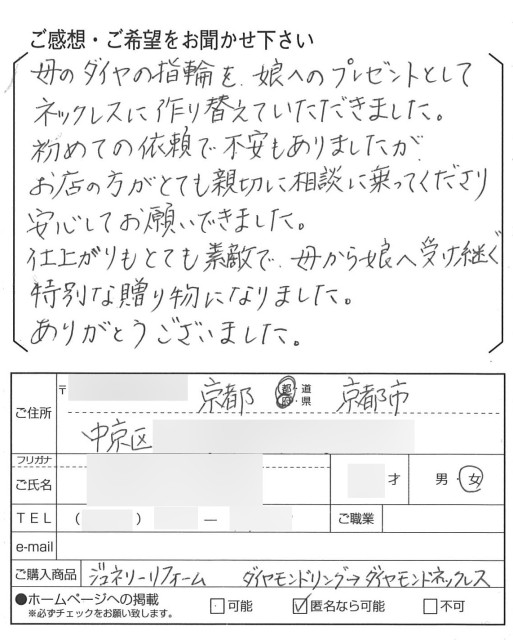 ご感想・ご希望をお聞かせ下さい
母のダイヤの指輪を、娘へのプレゼントとして
ネックレスに作り替えていただきました。
初めての依頼で不安もありましたが
お店の方がとても親切に相談に乗ってくださり
安心してお願いできました。
仕上がりもとても素敵で、母から娘へ受け継ぐ
特別な贈り物になりました。
ありがとうございました。
〒
ご住所 京都 都道府県 京都市
中京区
フリガナ
ご氏名 才 男・女
TEL ( ) — ご職業
e-mail
ご購入商品 ジュエリーリフォーム ダイヤモンドリング→ダイヤモンドネックレス
●ホームページへの掲載 □可能 ☑匿名なら可能 □不可
※必ずチェックをお願い致します。